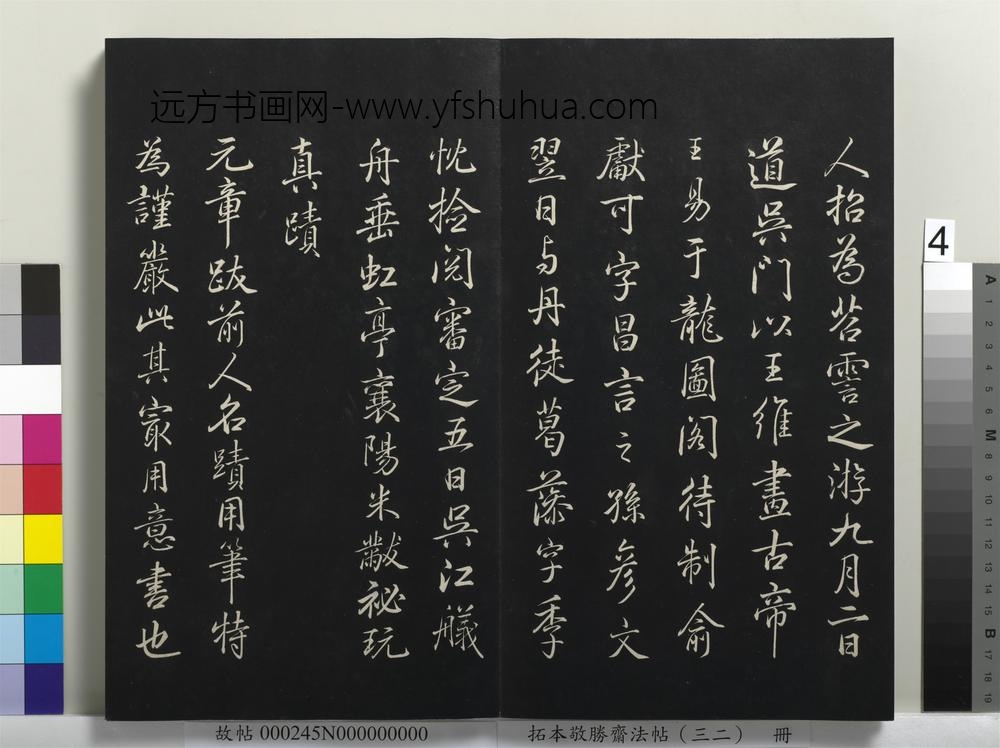 远方书画网-www.yfshuhua.com
人招為苕霅之游九月二日
道吳門以王維畫古帝
王易于龍圖閣待制俞
獻可字昌言之孫彦文
翌日与丹徒葛藻字季
忱撿閱審定五日吳江艤
舟垂虹亭襄陽米黻祕玩
真蹟
元章跋前人名蹟用筆特
為謹嚴此其冣用意書也
4
A
1
2
3
4
5
6
M
8
9
10
11
12
13
14
15
B
17
18
19
故帖 000245N000000000
拓本敬勝齋法帖（三二） 冊